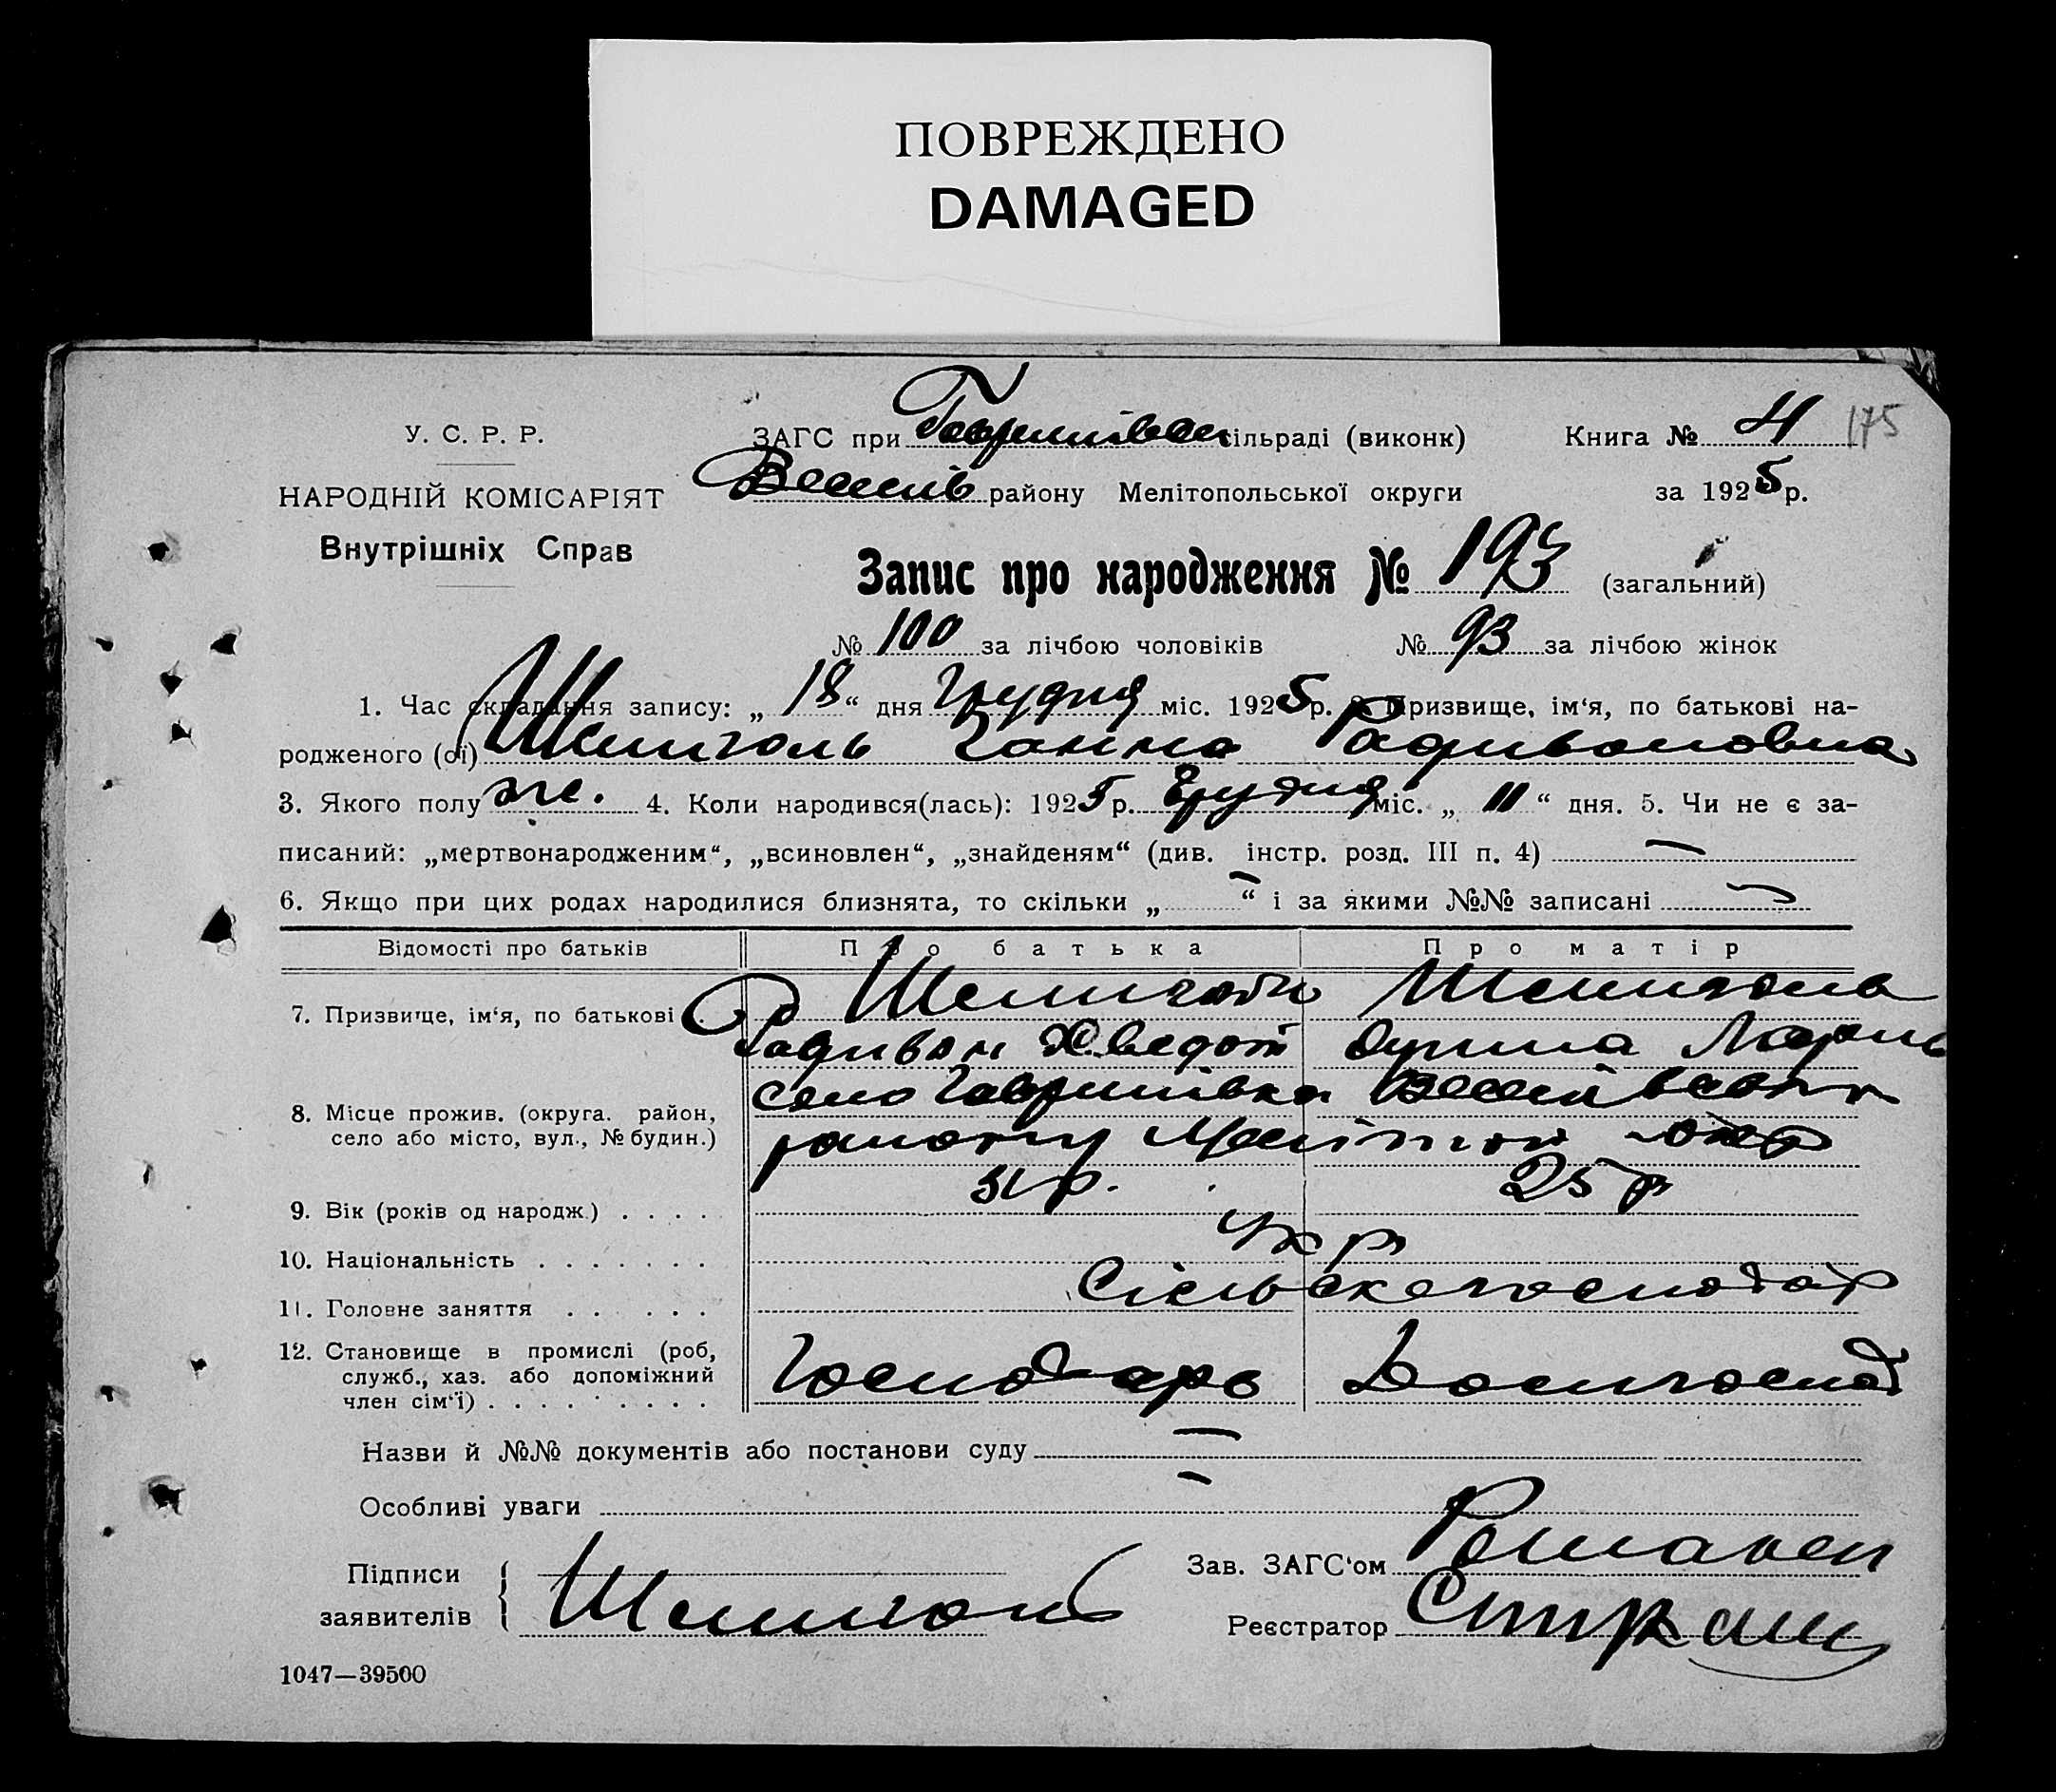 ПОВРЕЖДЕНО
DAMAGED
У. С. Р. Р.
НАРОДНІЙ КОМІСАРІЯТ
Внутрішніх Справ
ЗАГС при Гаврилівськ сільраді (виконк) Книга № 4 175
Веселів району Мелітопольської округи за 1925 р.
Запис про народження № 193 (загальний)
№ 100 за лічбою чоловіків № 93 за лічбою жінок
1. Час складання запису: „18“ дня Грудня міс. 1925 р. 2. Призвище, ім‘я, по батькові на-
родженого (ої) Ганна Радивоновна
3. Якого полу жі. 4. Коли народився(лась): 1925 р. Грудня міс. „11“ дня. 5. Чи не є за-
писаний: „мертвонародженим“, „всиновлен“, „знайденям“ (див. інстр. розд. III п. 4) —
6. Якщо при цих родах народилися близнята, то скільки „—“ і за якими №№ записані —
Відомості про батьків Про батька Про матір
7. Призвище, ім‘я, по батькові
Радивон Хведот Марія
8. Місце прожив. (округа. район, село Гаврилівка Веселівського
село або місто, вул., № будин.) району Меліт окр
9. Вік (років од народж.) . . . . . 25 р
10. Національність . . . . . . . Укр
11. Головне заняття . . . . . . Сільскогосподар
12. Становище в промислі (роб,
служб., хаз. або допоміжний Господарь Домогоспод
член сім‘ї) . . . . . . . . .
Назви й №№ документів або постанови суду —
Особливі уваги —
Підписи
заявителів
Зав. ЗАГС‘ом
Реєстратор
1047—39500